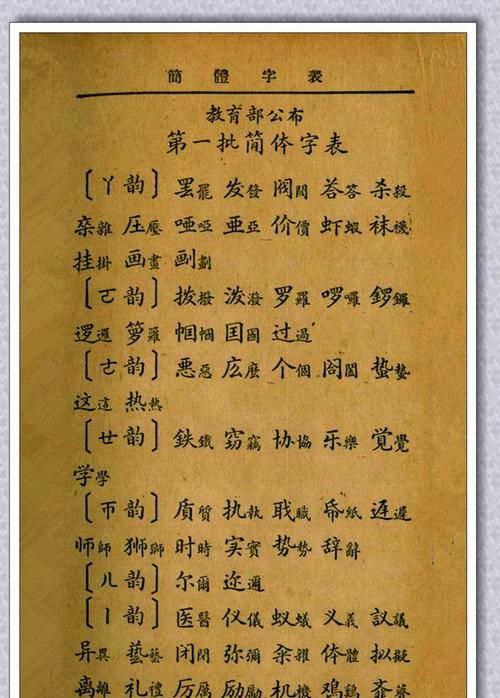 簡體字表
教育部公布
第一批简体字表
〔ㄚ韵〕罢罷 发發 阀閥 荅答 杀殺
杂雜 压壓 哑啞 亚亞 价價 虾蝦 袜襪
挂掛 画畫 劃
〔ㄛ韵〕拨撥 泼潑 罗羅 啰囉 鑼
逻邏 箩籮 帼幗 国國 过過
〔ㄜ韵〕悪惡 庅麼 个個 阁閤 蛰蟄
这這 热熱
〔ㄝ韵〕鉄鐵 窃竊 协協 乐樂 覚覺
学學
〔ㄭ韵〕质質 执執 职職 帋紙 迟遲
师師 狮獅 时時 实實 势勢 辞辭
〔ㄦ韵〕尔爾 迩邇
〔ㄧ韵〕医醫 仪儀 蚁蟻 义義 議
异異 藝 闭閉 弥彌 体體 拟擬
离離 礼禮 厉厲 励勵 机機 鸡鷄